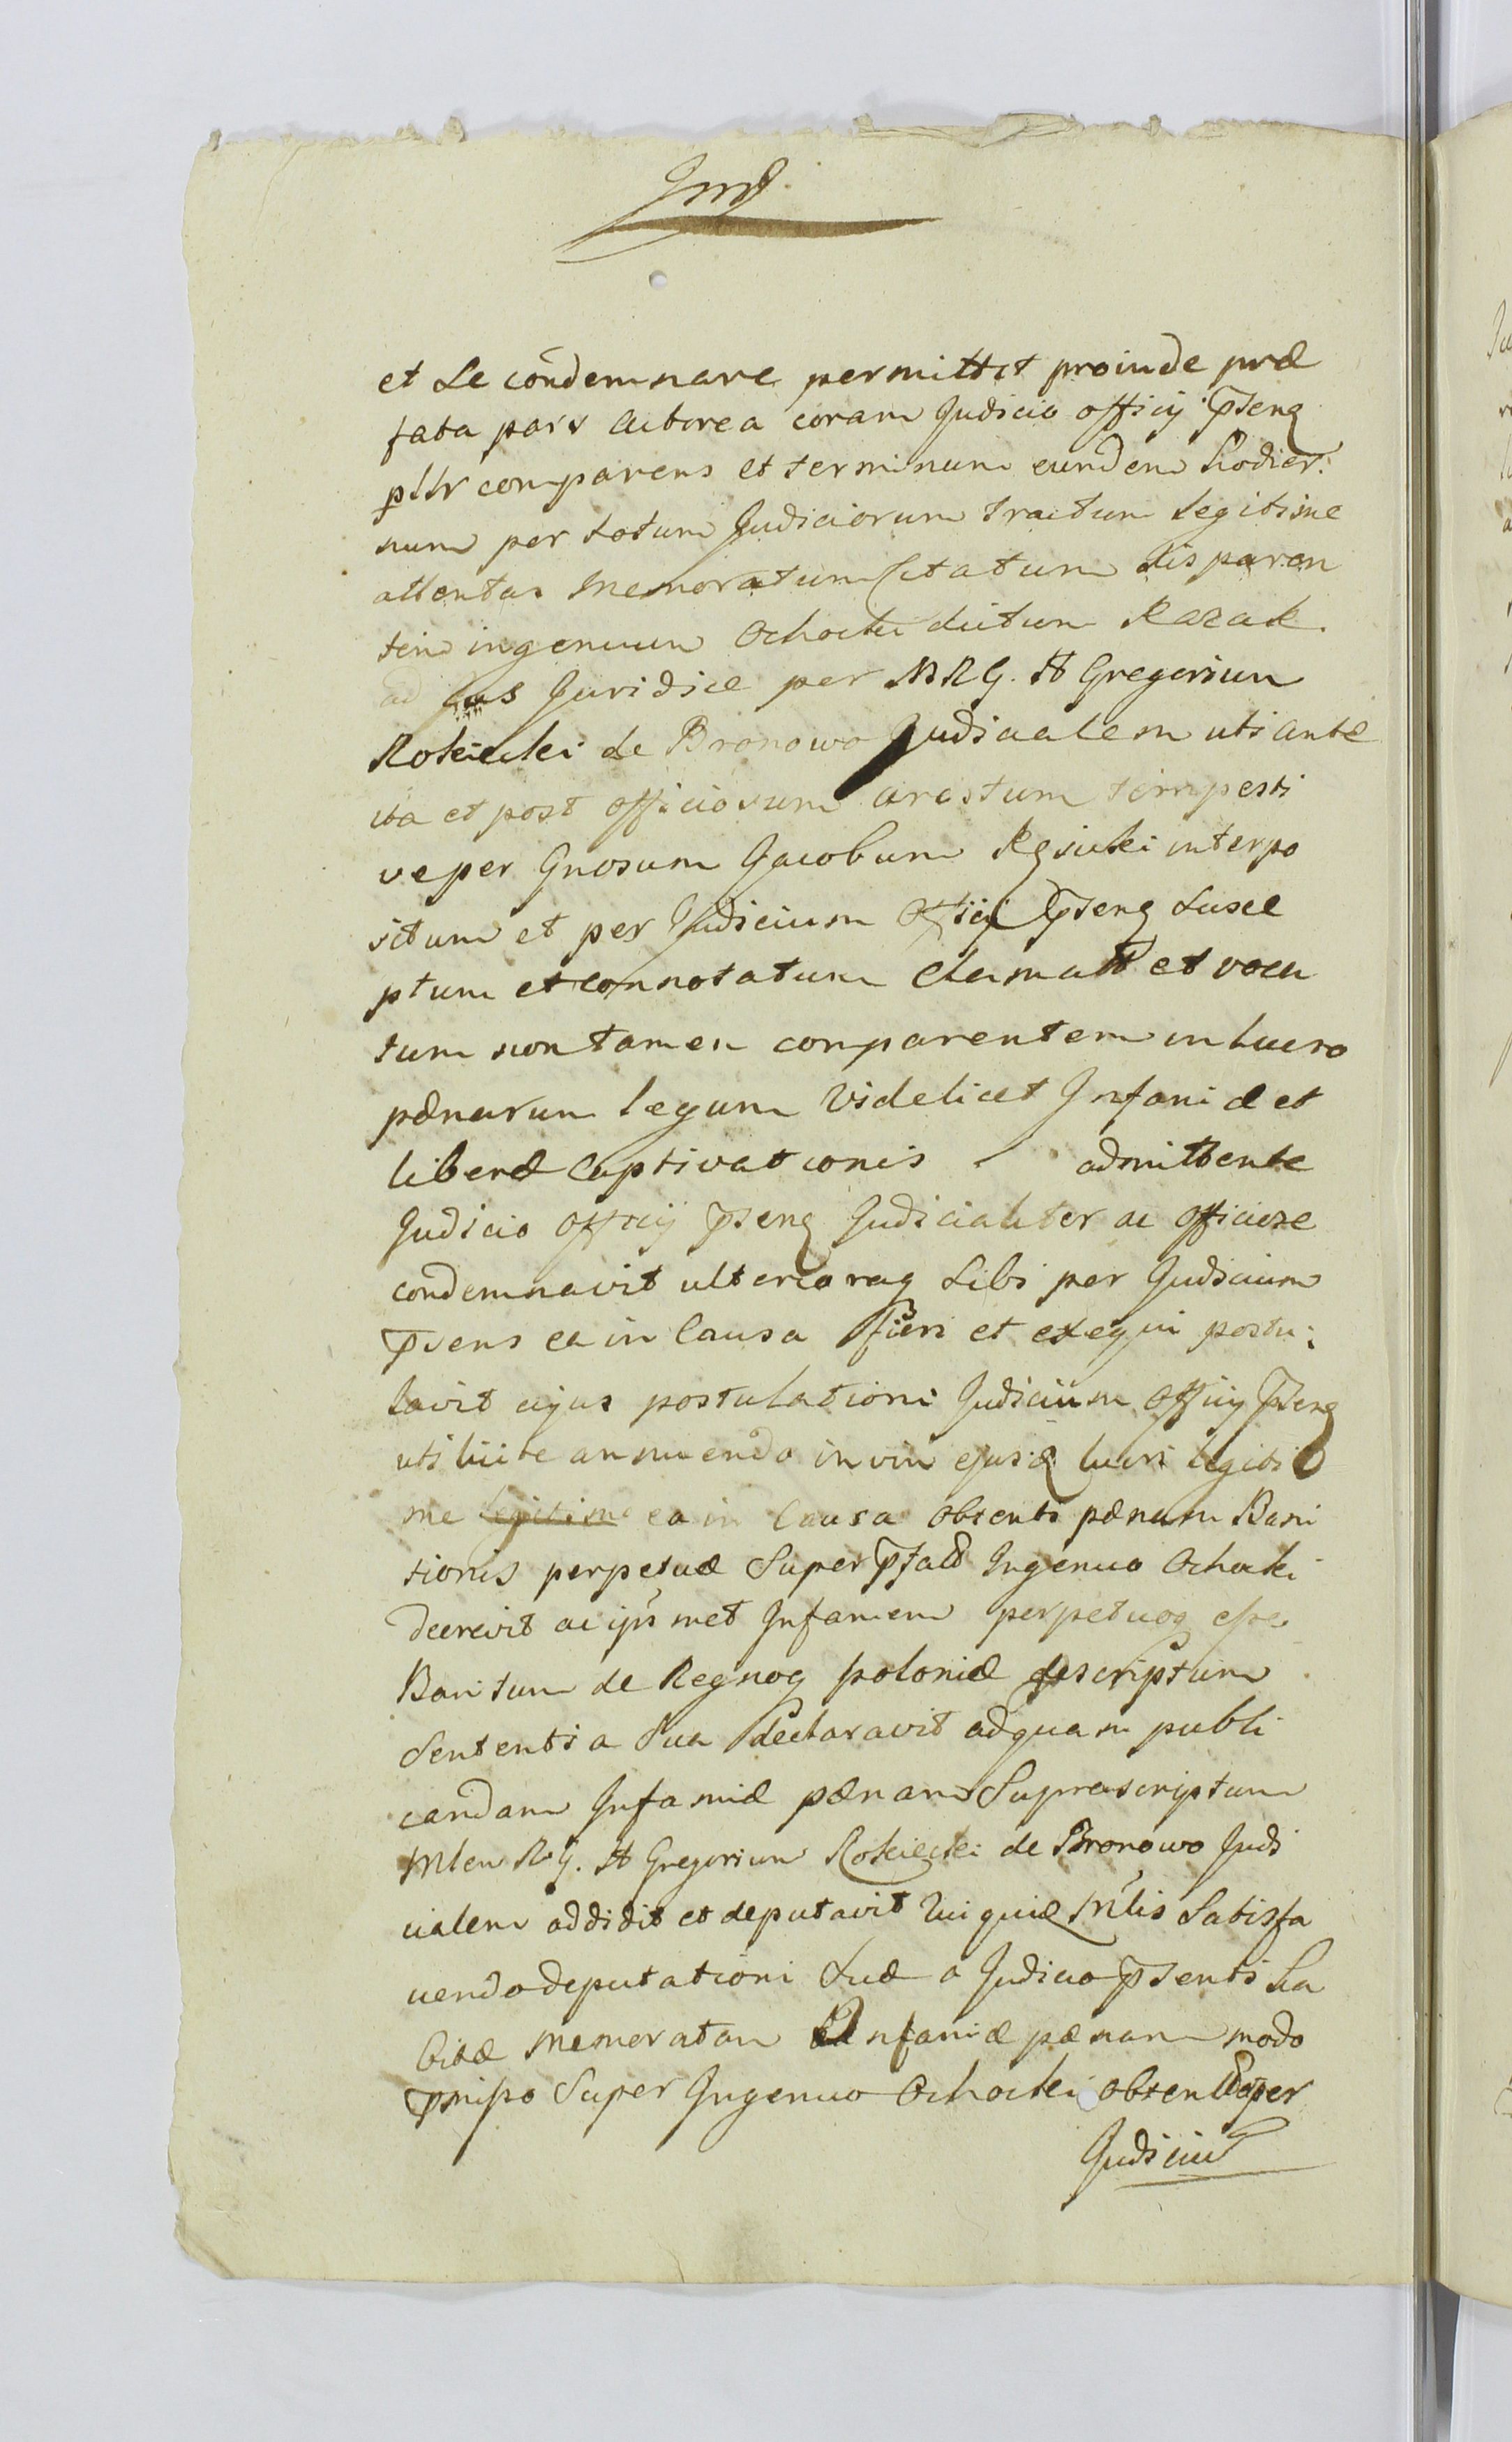 et Se condemnare permittit proinde præ
fata pars Actorea coram Judicio officij Psens
pssr comparens et terminum eundem hodier:
num per totum Judiciorum tractum legitime
attentas memoratum Citatum disparen
tem ingenuum Ochocki dictum Kazak
ad Jus Juridice per MRG. et Gregorium
Rościecki de Bronowo Judicialem uti ante
ita et post officiosum arestum tempesti
ve per Gnosum Jacobum interpo
situm et per Judicium Officij Psens susce
ptum et connotatum clamatt et voca
tum non tamen comparentem in lucro
pænarum legum Videlicet Infamiæ et
liberæ Captivationis admittente
Judicio officij Psens Judicialiter ac officiose
condemnavit ulterioraq Sibi per Judicium
Psens ea in Causa fieri et exequi postu:
lavit cujus postulationi Judicium officij Psens
uti licite annuendo in vim ejusd lucri legiti
me legitime ea in Causa obtenti pænam Bani
tionis perpetuæ Super Pfato Ingenuo Ochocki
decrevit ac ipsmet Infamem perpetuoq esse
Banitum de Regnoq poloniæ descriptum
Sententia Sua declaravit ad quam publi
candam Infamiæ pænam Suprascriptum
Mlem R.G. et Gregorium Rościecki de Bronowo Judi
cialem addidit et deputavit qui quid Mlis Satisfa
ciendo deputationi Suæ a Judicio Psenti ha
bitæ memoratam Infamiæ pænam modo
Pmisso Super Ingenuo Ochocki obtentt per
Judiciu